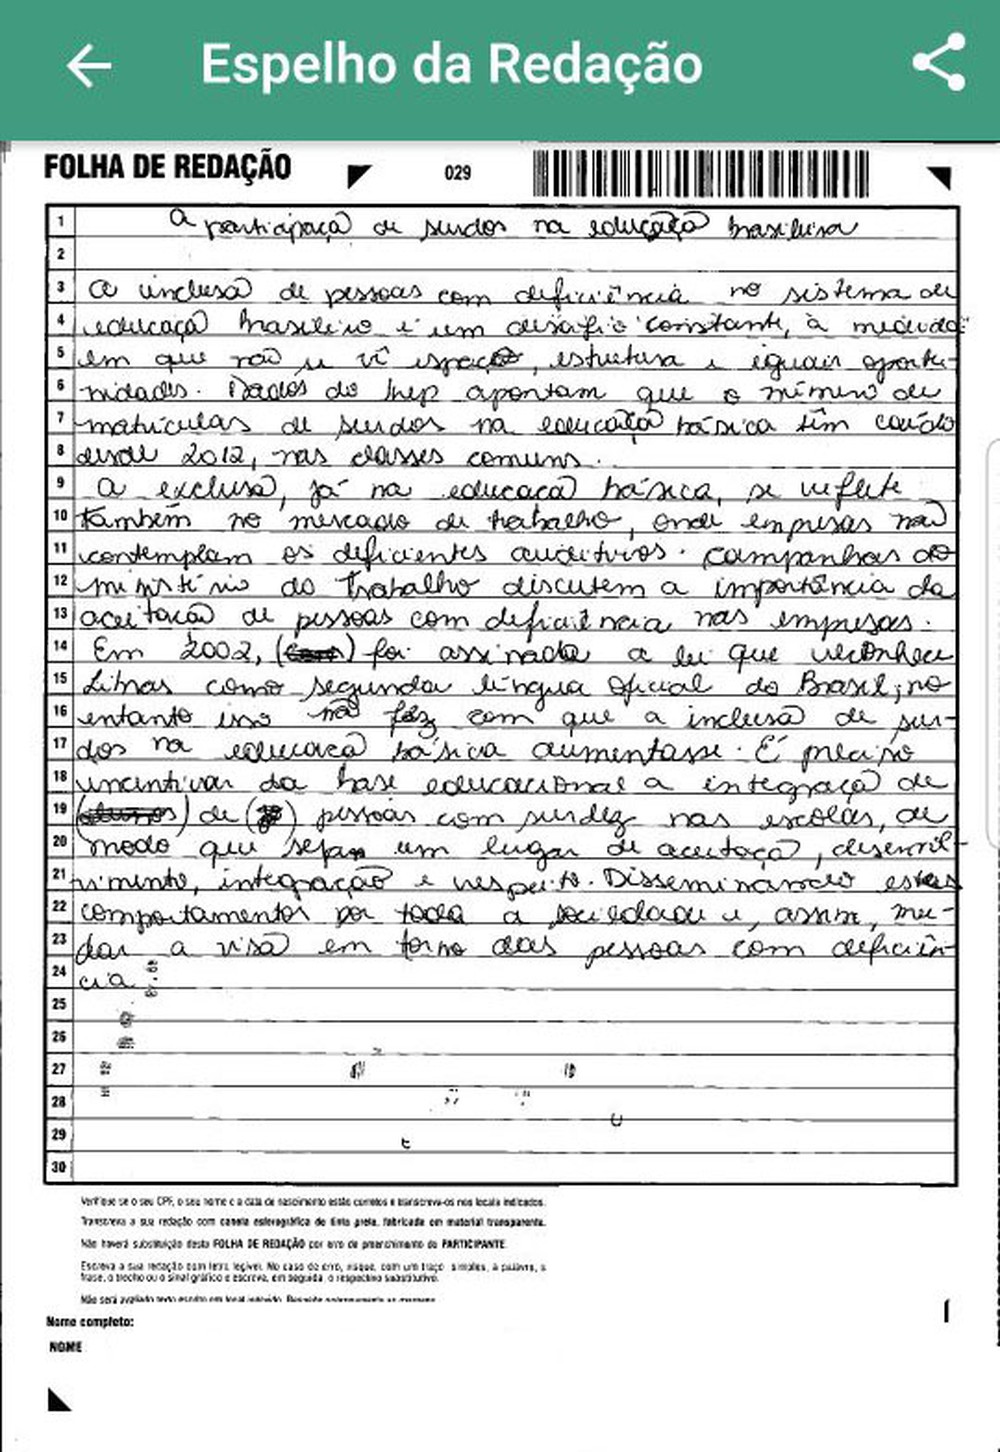 Espelho da Redação
FOLHA DE REDAÇÃO
029
1 A participaçã de surdos na educação brasileira
2
3 A inclusã de pessoas com deficiência no sistema de
4 educaçã brasileiro é um desafio constante, à medida
5 em que não se vê espaço, estrutura e iguais oportu-
6 nidades. Dados do Inep apontam que o número de
7 matrículas de surdos na educação básica têm caído
8 desde 2012, nas classes comuns.
9 A exclusã, já na educaçã básica, se reflete
10 também no mercado de trabalho, onde empresas nã
11 contemplam os deficientes auditivos. Campanhas do
12 ministério do Trabalho discutem a importância da
13 aceitação de pessoas com deficiência nas empresas.
14 Em 2002, ( ) foi assinada a lei que reconhece
15 Libras como segunda língua oficial do Brasil; no
16 entanto isso nã fez com que a inclusã de sur-
17 dos na educaçã básica aumentasse. É preciso
18 incentivar da base educacional a integraçã de
19 ( ) de ( ) pessoas com surdez nas escolas, de
20 modo que sejam um lugar de aceitaçã, desenvol-
21 vimento, integração e respeito. Disseminando estes
22 comportamentos por toda a sociedade e, assim, mu-
23 dar a visã em torno das pessoas com deficiên-
24 cia.
25
26
27
28
29
30
Verifique se o seu CPF, o seu nome e a data de nascimento estão corretos e transcreva-os nos locais indicados.
Transcreva a sua redação com caneta esferográfica de tinta preta, fabricada em material transparente.
Não haverá substituição desta FOLHA DE REDAÇÃO por erro de preenchimento do PARTICIPANTE.
Escreva a sua redação com letra legível. No caso de erro, risque, com um traço simples, a palavra, a
frase, o trecho ou o sinal gráfico e escreva, em seguida, o respectivo substitutivo.
Não será avaliado texto escrito em local indevido. Respeite
Nome completo:
NOME